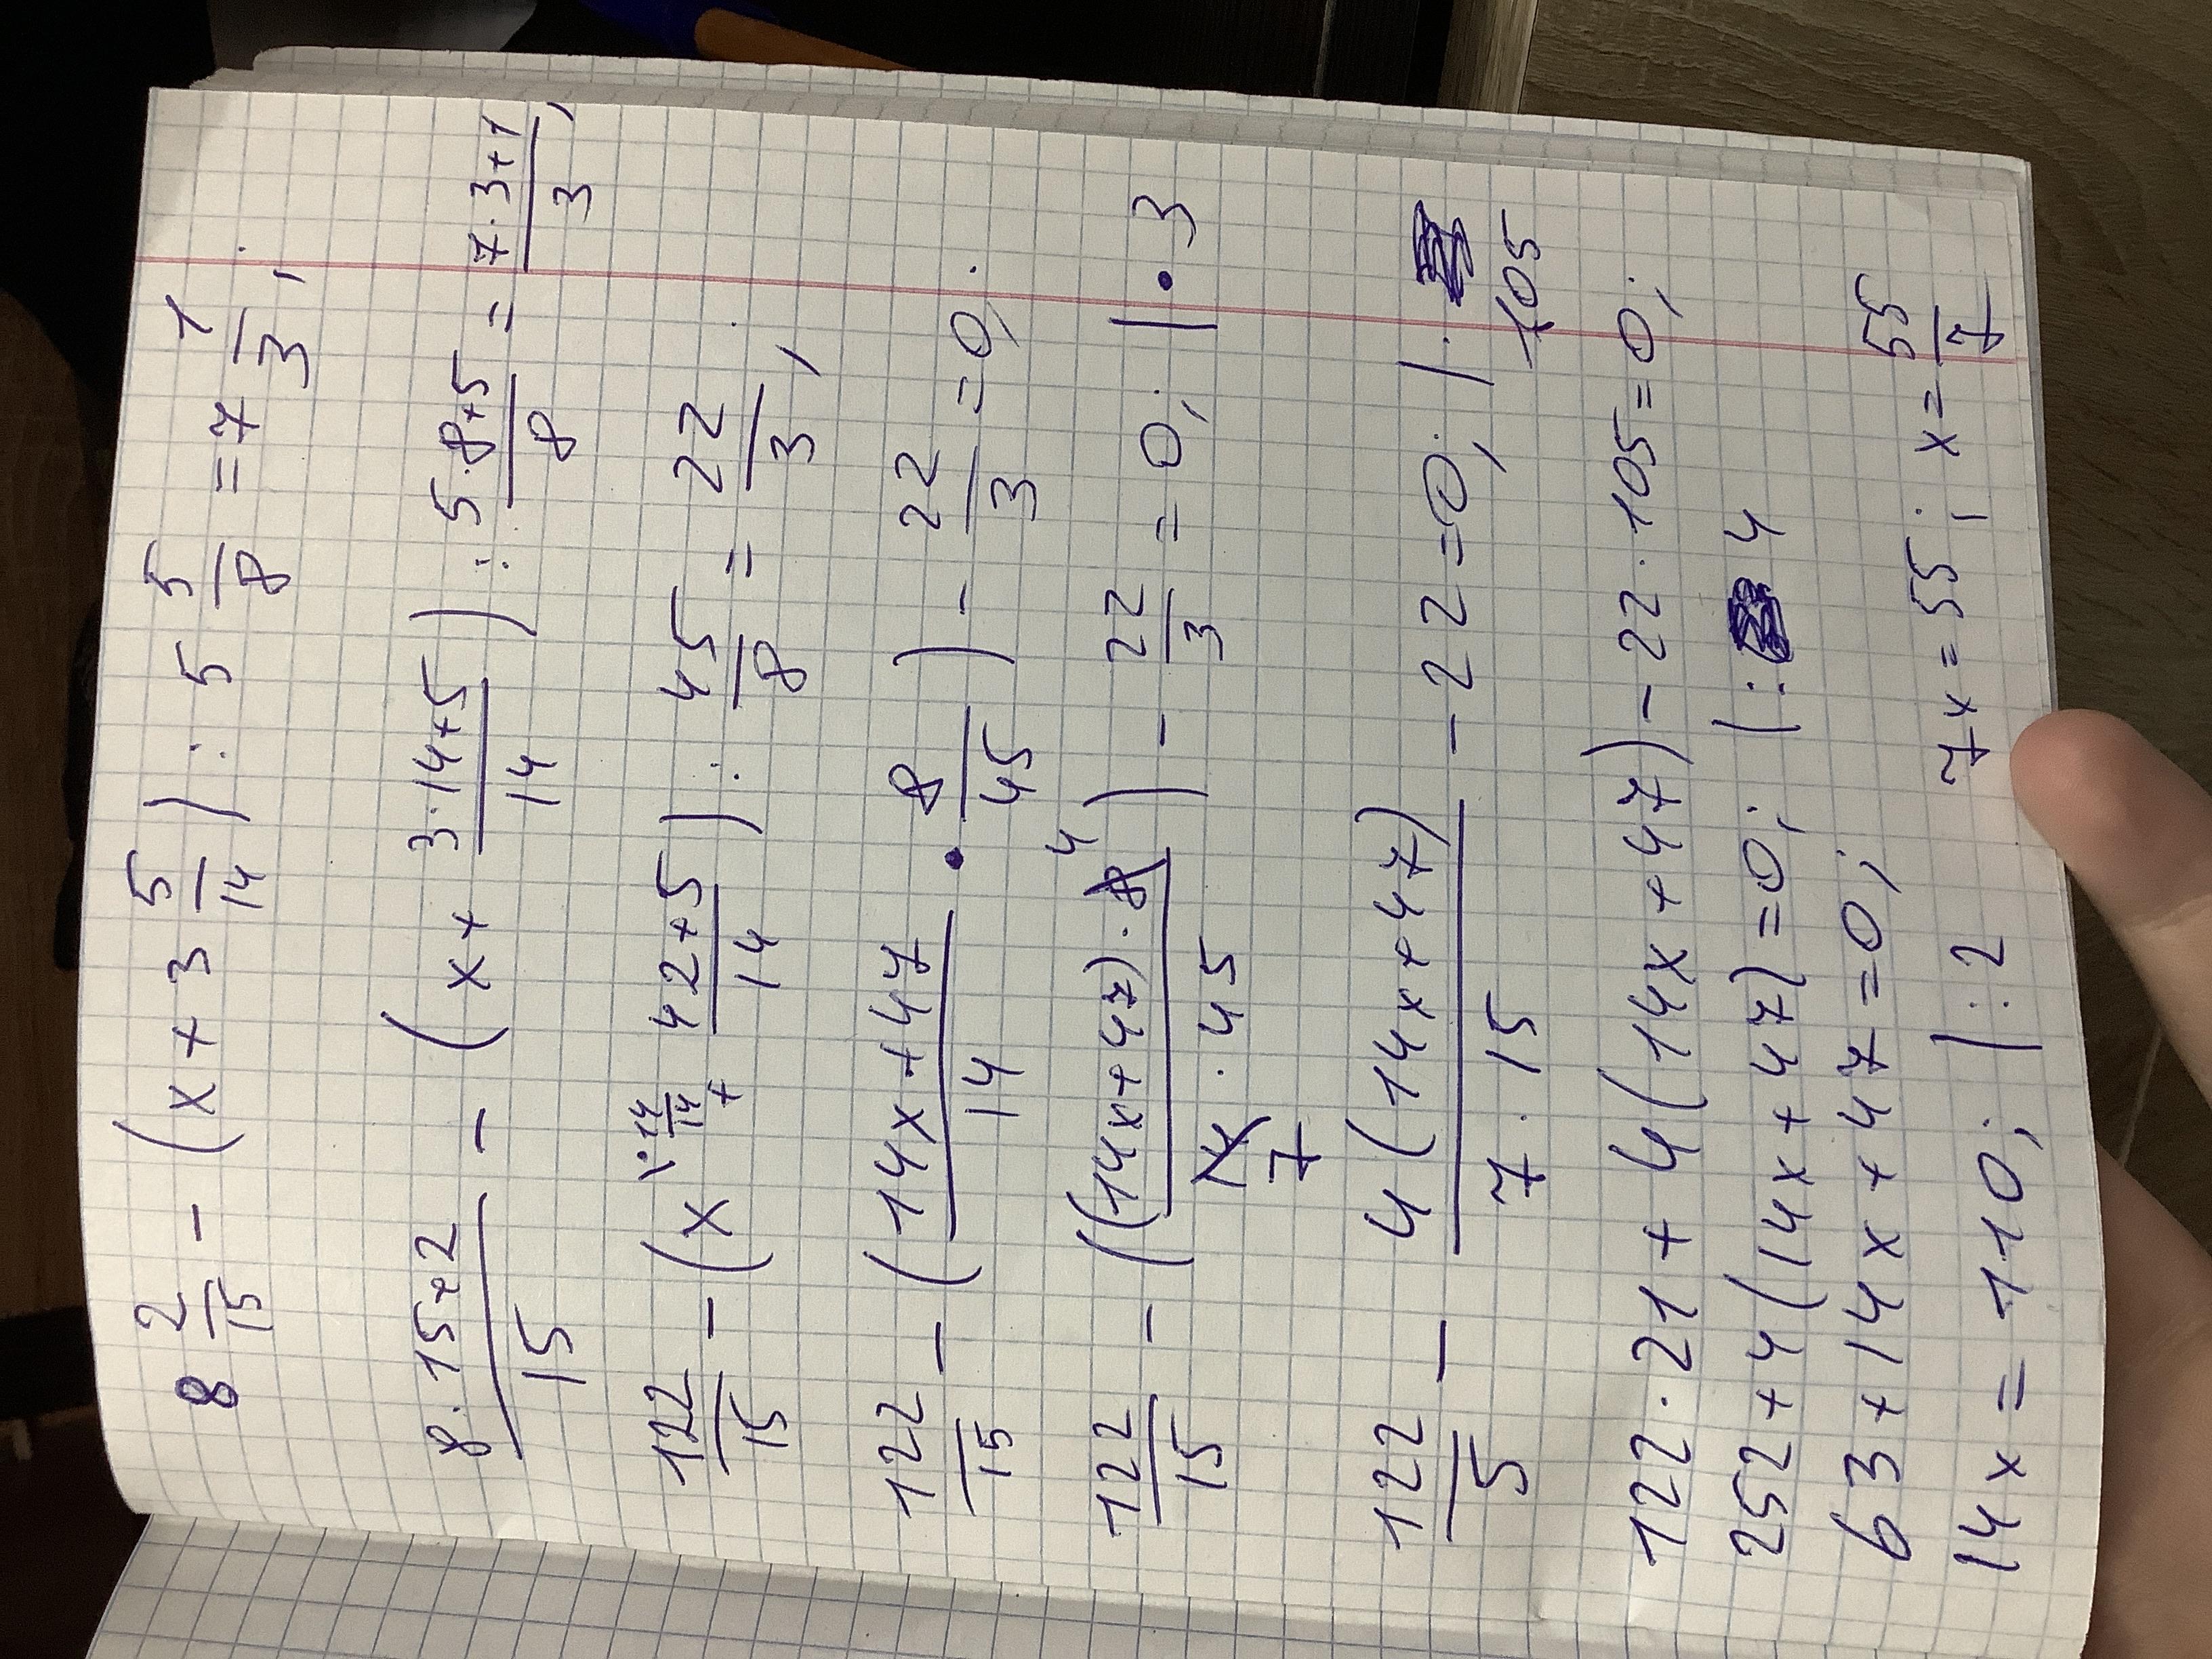 8 2/15 - (x + 3 5/14) : 5 5/8 = 7 1/3;
(8·15+2)/15 - (x + (3·14+5)/14) : (5·8+5)/8 = (7·3+1)/3;
122/15 - (x \·14/14 + (42+5)/14) : 45/8 = 22/3;
122/15 - ((14x+47)/14 · 8/45) - 22/3 = 0;
122/15 - (((14x+47)·8 4)/(14 7 · 45)) - 22/3 = 0; |·3
122/5 - 4(14x+47)/(7·15) - 22 = 0; |· 105
122·21 + 4(14x+47) - 22·105 = 0;
252 + 4(14x+47) = 0; |: 4
63 + 14x + 47 = 0;
14x = -110; |:2 7x = 55; x = 55/7